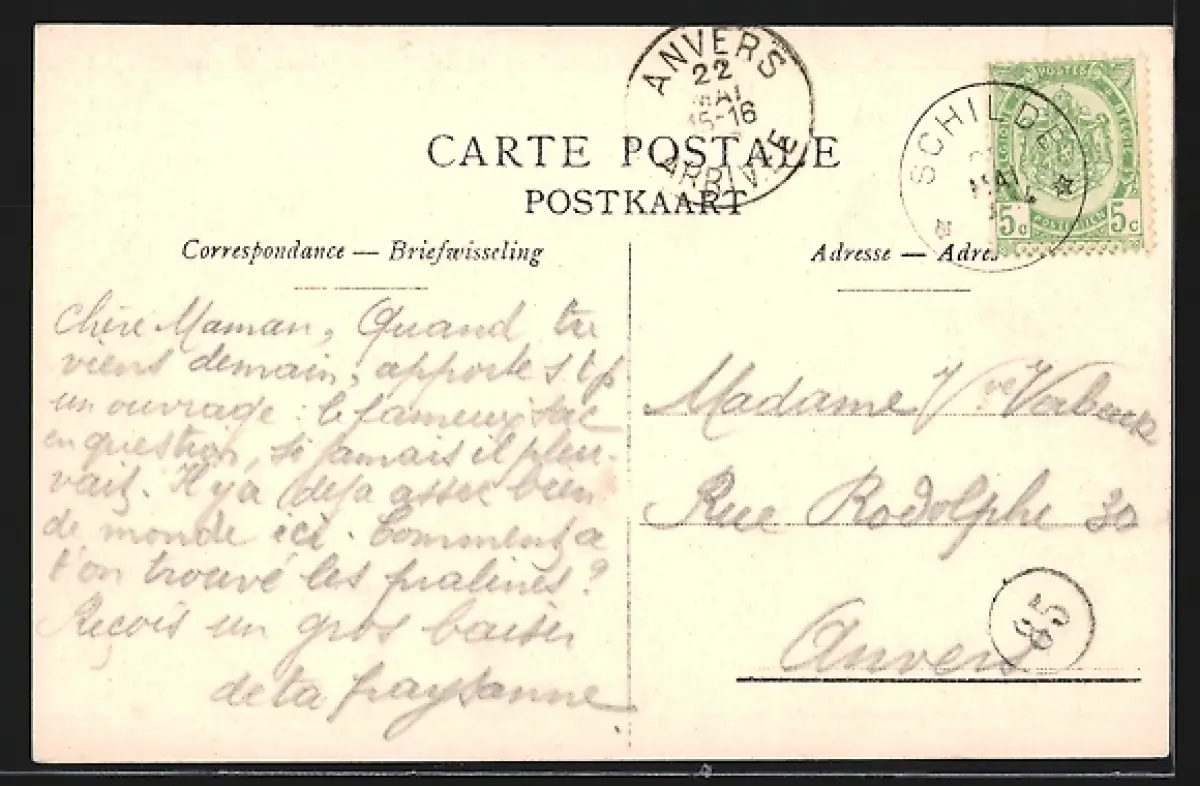 CARTE POSTALE
POSTKAART
ANVERS
22
MAI
15-16
ARRIVÉE
SCHILDE
MAI
POSTES
BELGIQUE
BELGIE
POSTERIJEN
5c 5c
Correspondance — Briefwisseling
Chère Maman, Quand tu
viens demain, apporte s t p
un ouvrage : le fameux sac
en question, si jamais il pleu-
vait. Il y a déja assez bien
de monde ici. Comment a
t'on trouvé les pralines?
Reçois un gros baiser
de ta paysanne
Adresse — Adres
Madame Vve
Rue Rodolphe 30
Anvers
85